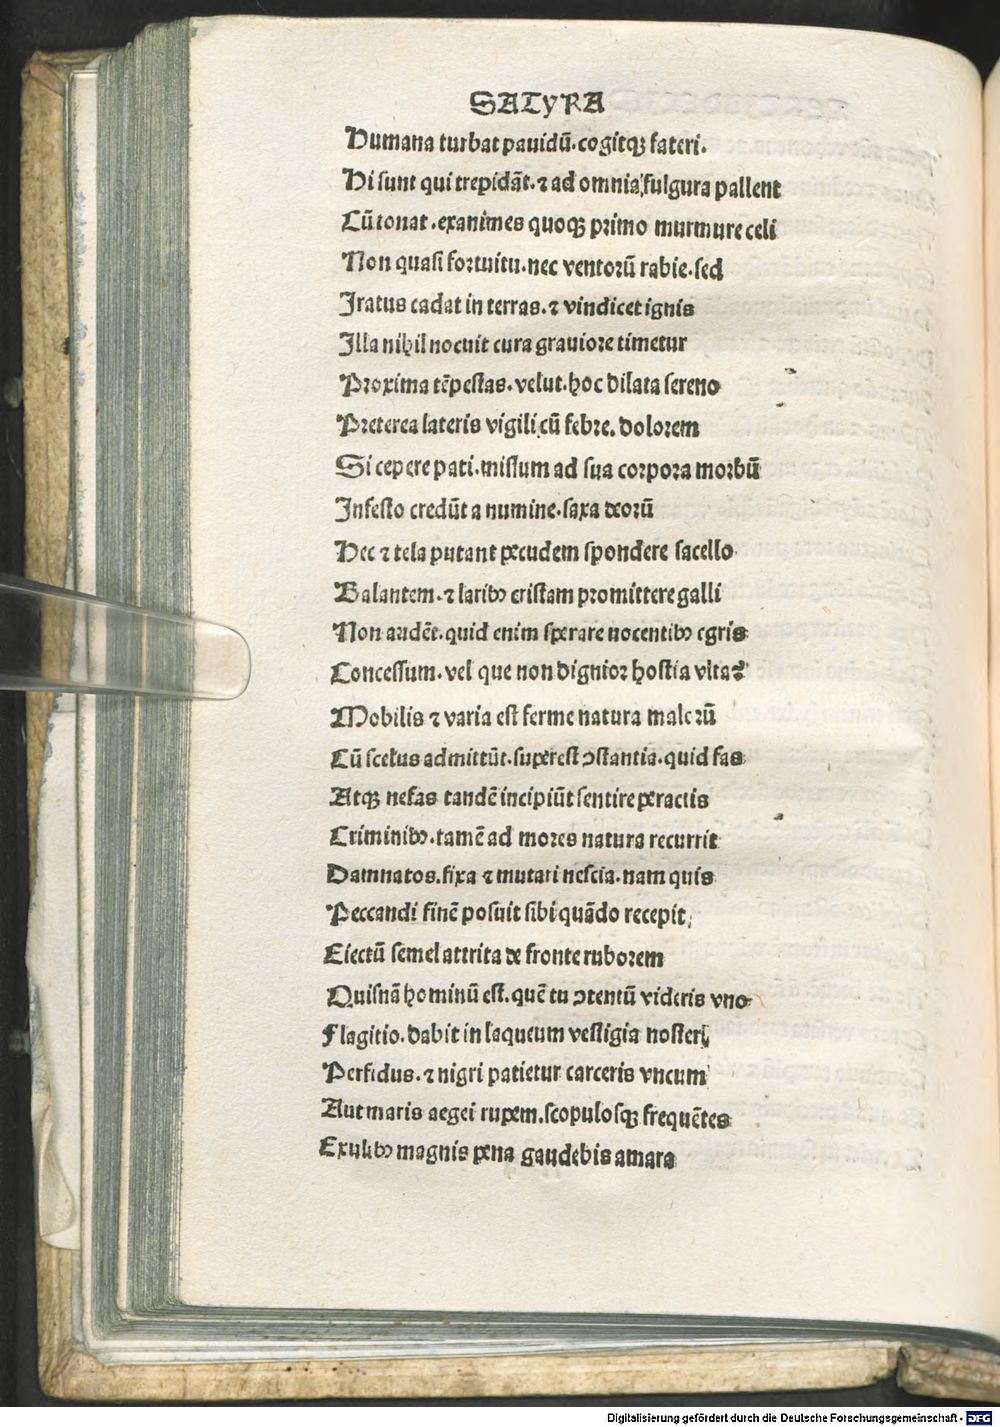 SATYRA
Humana turbat pauidū. cogitqꝫ fateri.
Hi sunt qui trepidāt. ⁊ ad omnia fulgura pallent
Cū tonat. exanimes quoqꝫ primo murmure celi
Non quasi fortuitu. nec ventorū rabie. sed
Iratus cadat in terras. ⁊ vindicet ignis
Illa nihil nocuit cura grauiore timetur
Proxima tēpestas. velut. hoc dilata sereno
Preterea lateris vigili cū febre. dolorem
Si cepere pati. missum ad sua corpora morbū
Infesto credūt a numine. saxa deorū
Hec ⁊ tela putant pecudem spondere sacello
Balantem. ⁊ laribꝰ cristam promittere galli
Non audēt. quid enim sperare nocentibꝰ egris
Concessum. vel que non dignior hostia vita?
Mobilis ⁊ varia est ferme natura malorū
Cū scelus admittūt. superest ↄstantia. quid fas
Atqꝫ nefas tandē incipiūt sentire peractis
Criminibꝰ. tamē ad mores natura recurrit
Damnatos. fixa ⁊ mutari nescia. nam quis
Peccandi finē posuit sibi quādo recepit
Eiectū semel attrita de fronte ruborem
Quisnā hominū est. quē tu ↄtentū videris vno
Flagitio. dabit in laqueum vestigia noster
Perfidus. ⁊ nigri patietur carceris vncum
Aut maris aegei rupem. scopulosqꝫ frequētes
Exulibꝰ magnis pena gaudebis amara
Digitalisierung gefördert durch die Deutsche Forschungsgemeinschaft - DFG